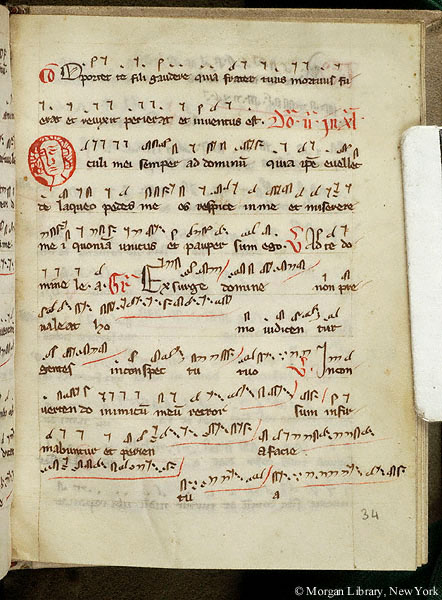 Oportet te fili gaudere quia frater tuus mortuus fu
erat et revixit perierat et inventus est. Do. iii. in xl
Oculi mei semper ad dominu quia ipe evellet
te laqueo pedes me os respice in me et miserere
me i quonia unicus et pauper sum ego. V Ad te do
mine le a. Gr Exsurge domine non pre
valeat ho mo iudicen tur
gentes in conspec tu tuo V In con
vertendo inimicu meu retror sum infir
mabuntur et perien a facie
tu a
34
© Morgan Library, New York